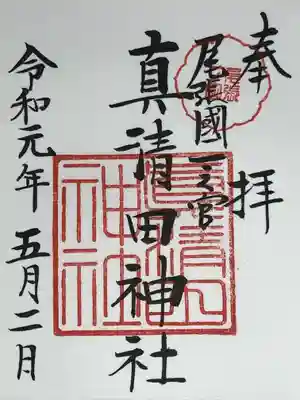 奉拝
尾張國一之宮
真清田神社
令和元年五月二日
真清田
神社